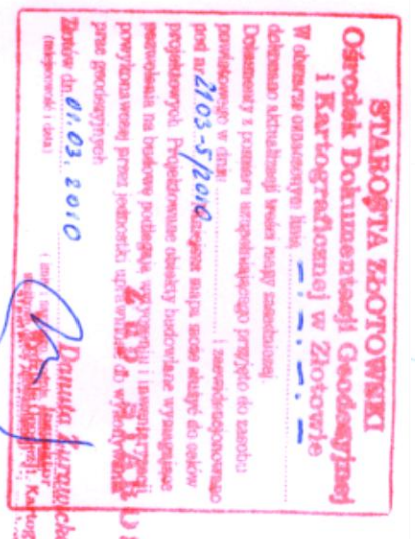 STAROSTA ZŁOTOWSKI
Ośrodek Dokumentacji Geodezyjnej
i Kartograficznej w Złotowie
W obszarze oznaczonym linią
dokonano aktualizacji treści mapy zasadniczej
Dokumenty z pomiaru uzupełniającego przyjęto do zasobu
powiatowego w dniu i zaewidencjonowano
pod nr 2103-5/2010 mapa może służyć do celów
projektowych. Projektowane obiekty budowlane wymagające
pozwolenia na budowę podlegają wytyczeniu i inwentaryzacji
powykonawczej przez jednostki uprawnione do wykonywania
prac geodezyjnych
Z up. STAROSTY
Złotów dn. 01.03.2010
(miejscowość i data)
Danuta